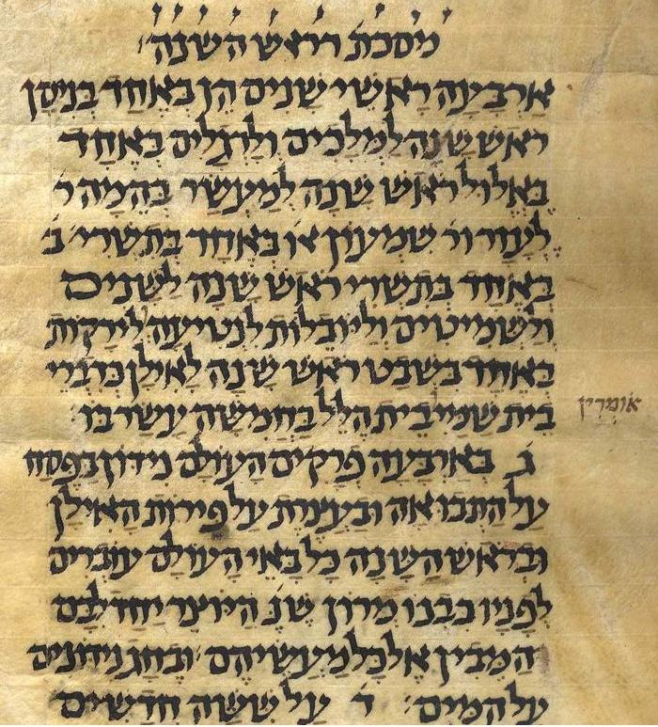 מסכת דראש השנה
ארבעה ראשי שנים הן באחד בניסן
ראש שנה למלכים ולרגלים באחד
באלול ראש שנה למעשר בהמה ר׳
לעזר ור׳ שמעון או׳ באחד בתשרי׃ ב
באחד בתשרי ראש שנה לשנים
ולשמיטים וליובלות לנטיעה לירקות
באחד בשבט ראש שנה לאילן כדברי
בית שמיי בית הלל בחמשה עשר בו׃
אומרין
ג בארבעה פרקים העולם נידון בפסח
על התבואה ובעצרת על פירות האילן
ובראש השנה כל באי העולם עוברים
לפניו כבנו מרון שנ׳ היוצר יחד לבם
המבין אל כל מעשיהם ובחג נידונים
על המים׃ ד על ששה חדשים